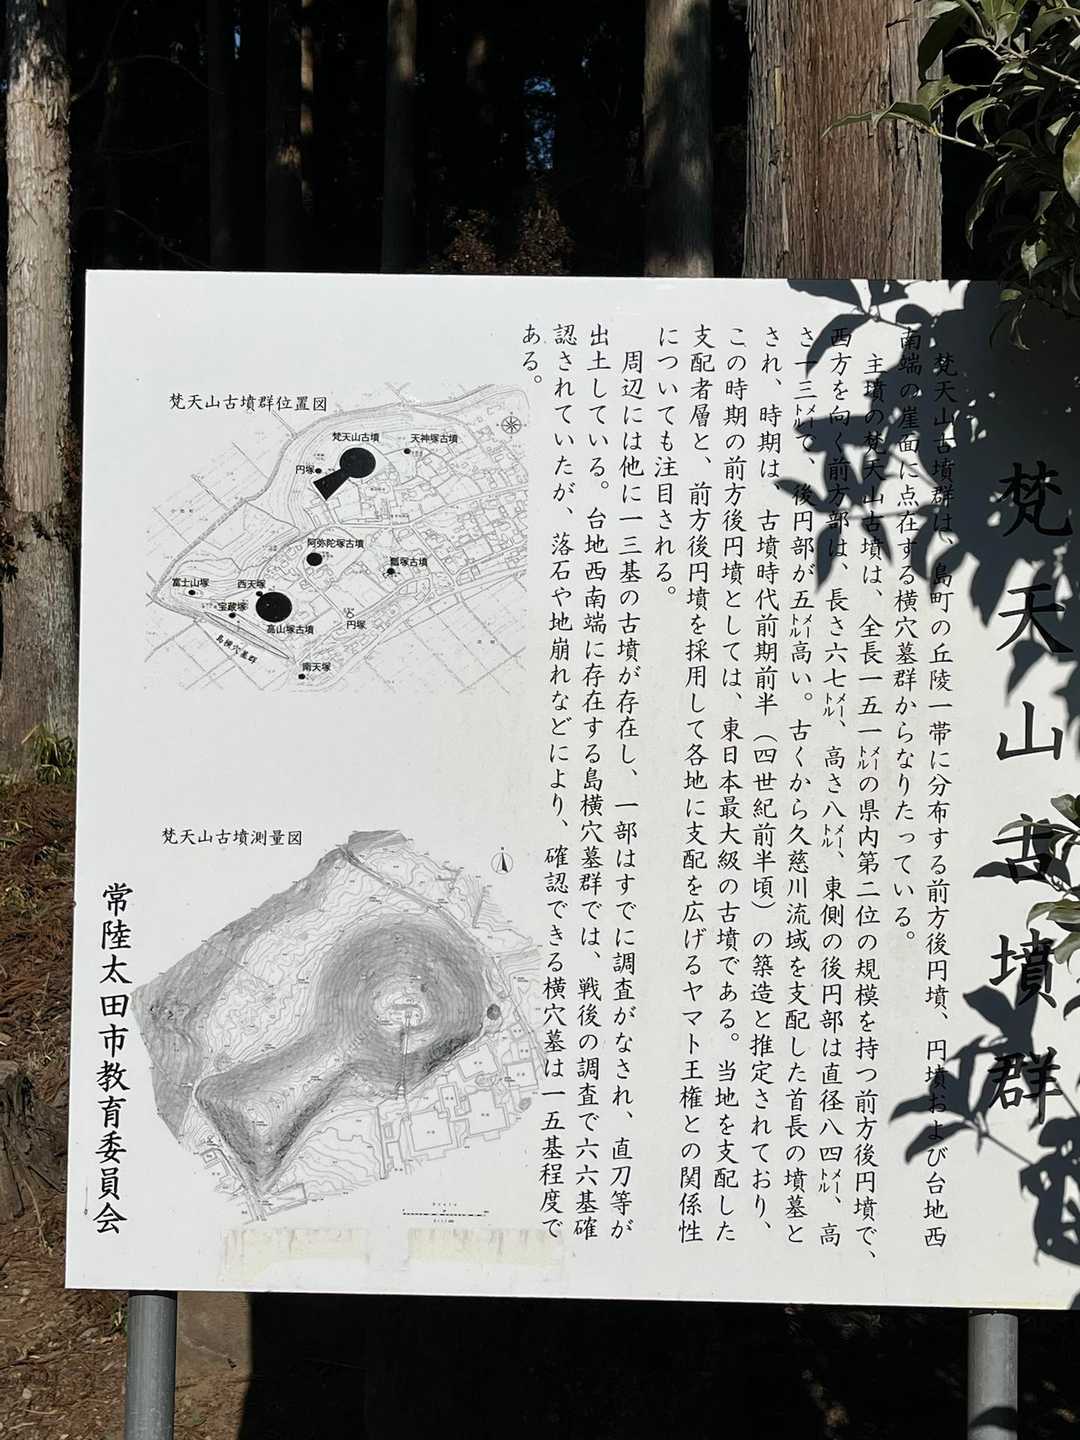 梵天山古墳群
　梵天山古墳群は、島町の丘陵一帯に分布する前方後円墳、円墳および台地西
南端の崖面に点在する横穴墓群からなりたっている。
　主墳の梵天山古墳は、全長一五一㍍の県内第二位の規模を持つ前方後円墳で、
西方を向く前方部は、長さ六七㍍、高さ八㍍、東側の後円部は直径八四㍍、高
さ一三㍍で、後円部が五㍍高い。古くから久慈川流域を支配した首長の墳墓と
され、時期は、古墳時代前期前半（四世紀前半頃）の築造と推定されており、
この時期の前方後円墳としては、東日本最大級の古墳である。当地を支配した
支配者層と、前方後円墳を採用して各地に支配を広げるヤマト王権との関係性
についても注目される。
　周辺には他に一三基の古墳が存在し、一部はすでに調査がなされ、直刀等が
出土している。台地西南端に存在する島横穴墓群では、戦後の調査で六六基確
認されていたが、落石や地崩れなどにより、確認できる横穴墓は一五基程度で
ある。
梵天山古墳群位置図
梵天山古墳
天神塚古墳
円塚
阿弥陀塚古墳
瓢塚古墳
富士山塚
西天塚
宝蔵塚
高山塚古墳
円塚
島横穴墓群
南天塚
梵天山古墳測量図
常陸太田市教育委員会